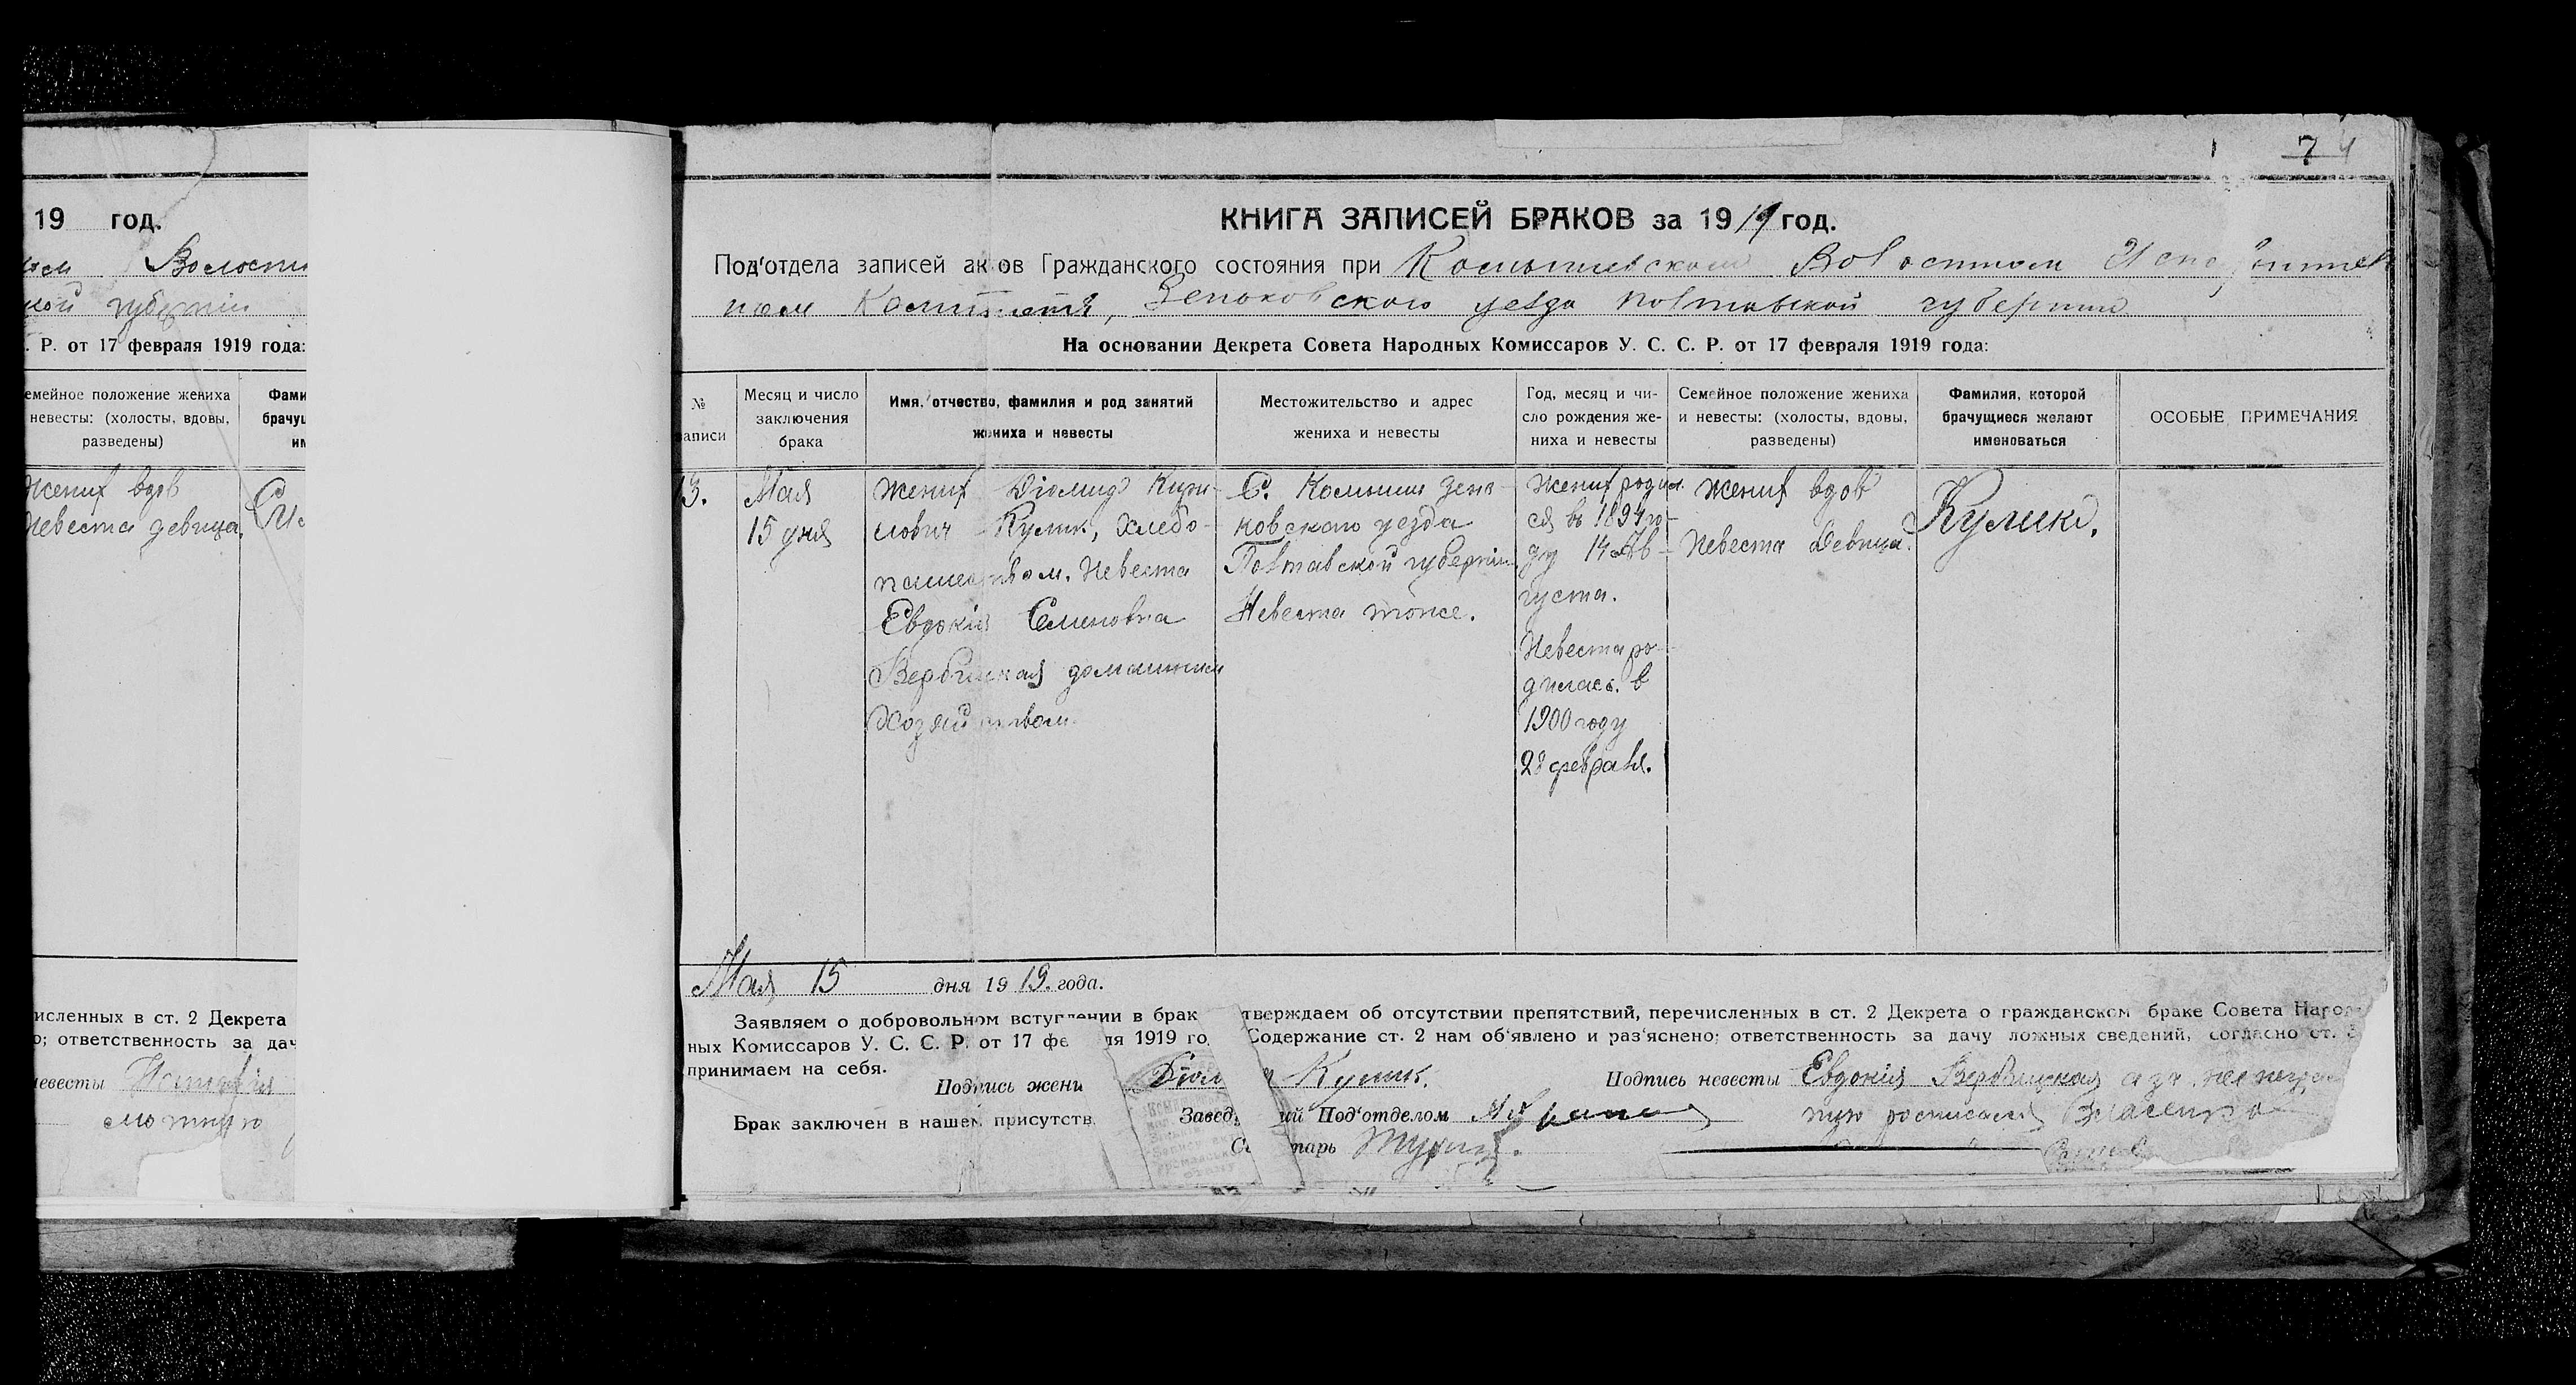 74
19 год.
Волостн
ной губернии
. Р. от 17 февраля 1919 года:
емейное положение жениха
невесты: (холосты, вдовы,
разведены)
Фами
брачущ
им
Жених вдов
Невеста девица.
исленных в ст. 2 Декрета
о; ответственность за дач
невесты
КНИГА ЗАПИСЕЙ БРАКОВ за 1919 год.
Под‘отдела записей актов Гражданского состояния при Комышевском Волостном
ном Комитете, Зеньковского уезда Полтавской губернии
На основании Декрета Совета Народных Комиссаров У. С. С. Р. от 17 февраля 1919 года:
№
записи
Месяц и число
заключения
брака
Имя, отчество, фамилия и род занятий
жениха и невесты
Местожительство и адрес
жениха и невесты
Год, месяц и чи-
сло рождения же-
ниха и невесты
Семейное положение жениха
и невесты: (холосты, вдовы,
разведены)
Фамилия, которой
брачущиеся желают
именоваться
ОСОБЫЕ ПРИМЕЧАНИЯ
13.
Мая
15 дня
Жених Діомид Кири-
лович Кулик, Хлебо-
пашеством. Невеста
Евдокія Семеновна
Вербицкая домашним
Хозяйством
С. Комыши Зень-
ковского уезда
Полтавской губернии
Невеста тоже.
Жених родил-
ся въ 1894 го-
ду 14 Ав-
густа.
Невеста ро-
дилась в
1900 году
28 февраля.
Жених вдов
Невеста Девица.
Куликъ.
Мая 15 дня 1919. года.
Заявляем о добровольном вступлении в брак тверждаем об отсутствии препятствий, перечисленных в ст. 2 Декрета о гражданском браке Совета Народ
ных Комиссаров У. С. С. Р. от 17 фе ля 1919 го. Содержание ст. 2 нам об‘явлено и раз‘яснено; ответственность за дачу ложных сведений, согласно ст. 3
принимаем на себя.
Подпись жени Діом Кулик.
Подпись невесты Евдокія Вербицкая а за
росписался
Брак заключен в нашем присутств.
Завед ий Под‘отделом
С тарь